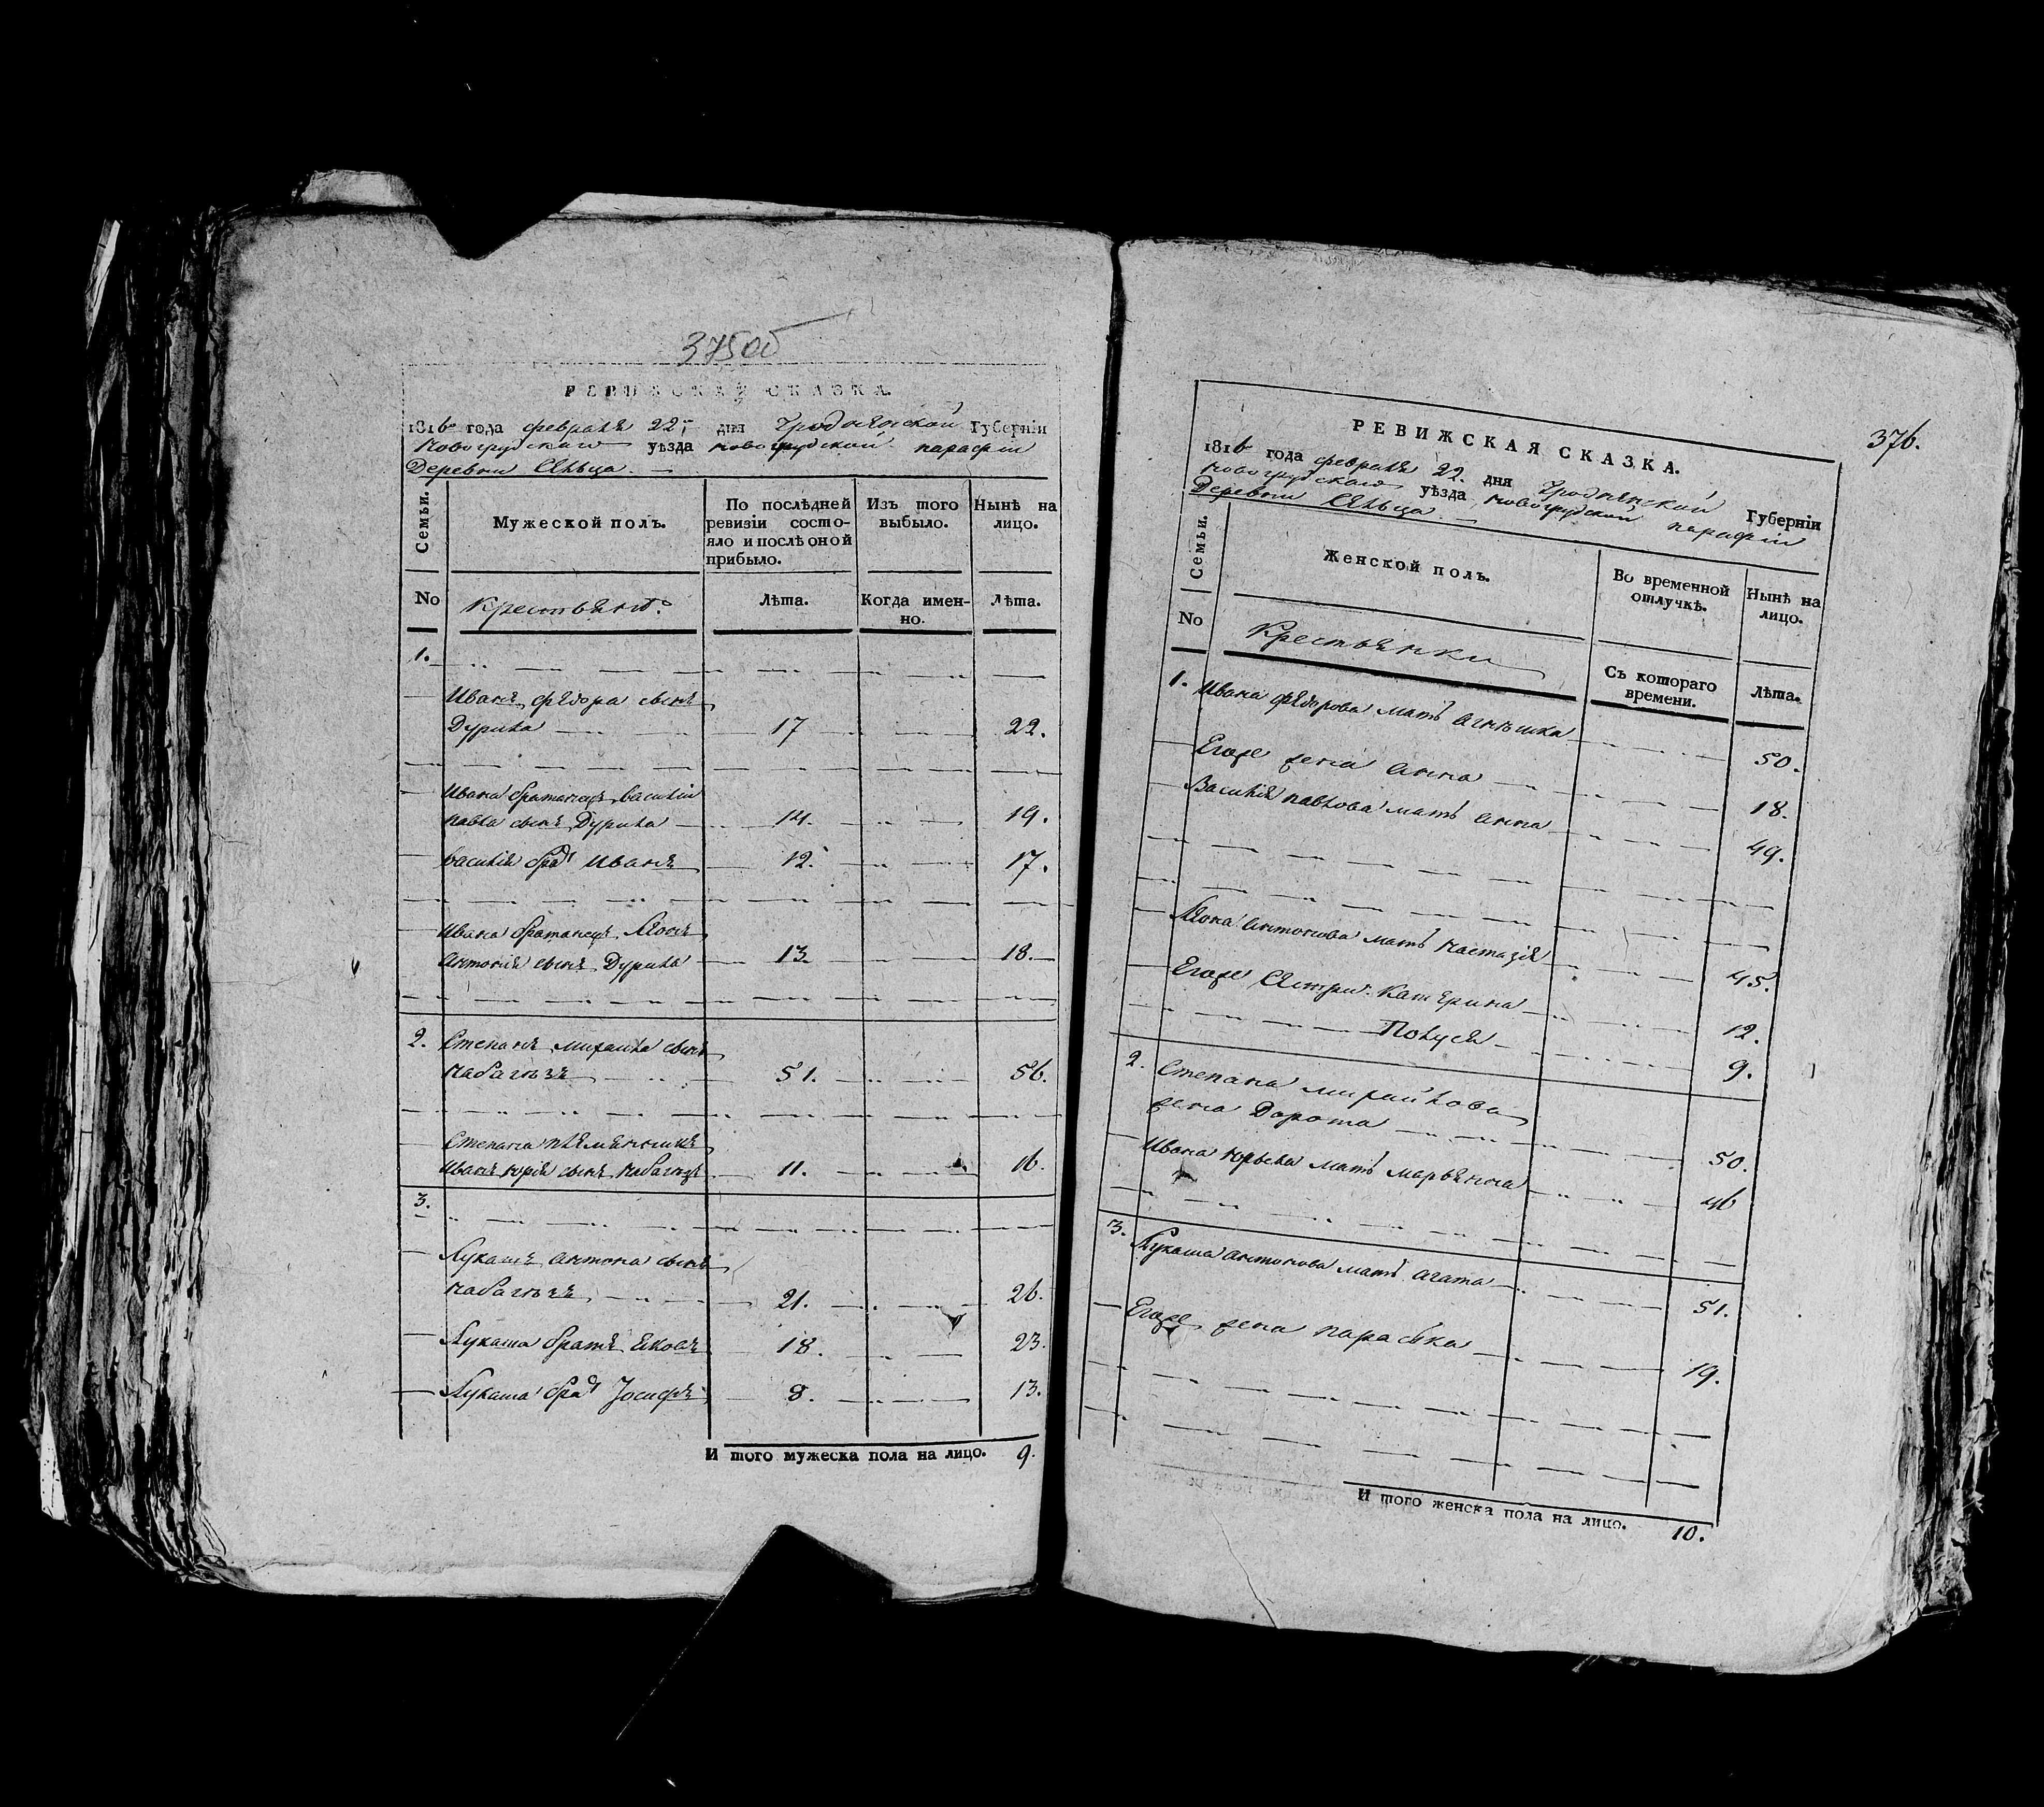 375об
РЕВИЖСКАЯ СКАЗКА.
1816 года февраля 22 дня Гродненской Губерніи
Новогрудскаго уѣзда новогрудской парафіи
Деревни Сельца.
Семьи.
Мужеской полъ.
По послѣдней ревизіи состо-яло и послѣ оной прибыло.
Изъ того выбыло.
Нынѣ на лицо.
No
Крестьянѣ.
Лѣта.
Когда имен-но.
Лѣта.
1.
Иванъ федора сынъ
Дурила 17 22.
Ивана братанецъ василій
павла сынъ Дурила 14. 19.
василія бра т иванъ 12. 17.
Ивана братанецъ Леонъ
Антонія сынъ Дурила 13. 18.
2. Степанъ михайла сынъ
набагъзъ 51. 56.
Степана племянникъ
иванъ юрія сынъ набагъзъ 11. 16.
3.
Лукашъ антона сынъ
набагъзъ 21. 26.
Лукаша братъ яковъ 18. 23.
Лукаша бра т Јосифъ 8. 13.
И того мужеска пола на лицо. 9.
376.
РЕВИЖСКАЯ СКАЗКА.
1816 года февраля 22. дня Гродненской Губерніи
новогрудскаго уѣзда новогрудской парафіи
Деревни Сельца.
Семьи.
Женской полъ.
Во временной отлучкѣ.
Нынѣ на лицо.
No
Крестьянки
Съ котораго времени.
Лѣта.
1. ивана федорова мать агнешка 50.
Егоже жена анна 18.
Василія павлова мать анна 49.
Леона антонова мать настазія 45.
Егоже сестри катерина 12.
Полуся 9.
2. Степана михайлова
жена Дорота 50.
ивана юрьева мать марьянна 46
3. Лукаша антонова мать агата 51.
Егоже жена параска 19.
И того женска пола на лицо. 10.